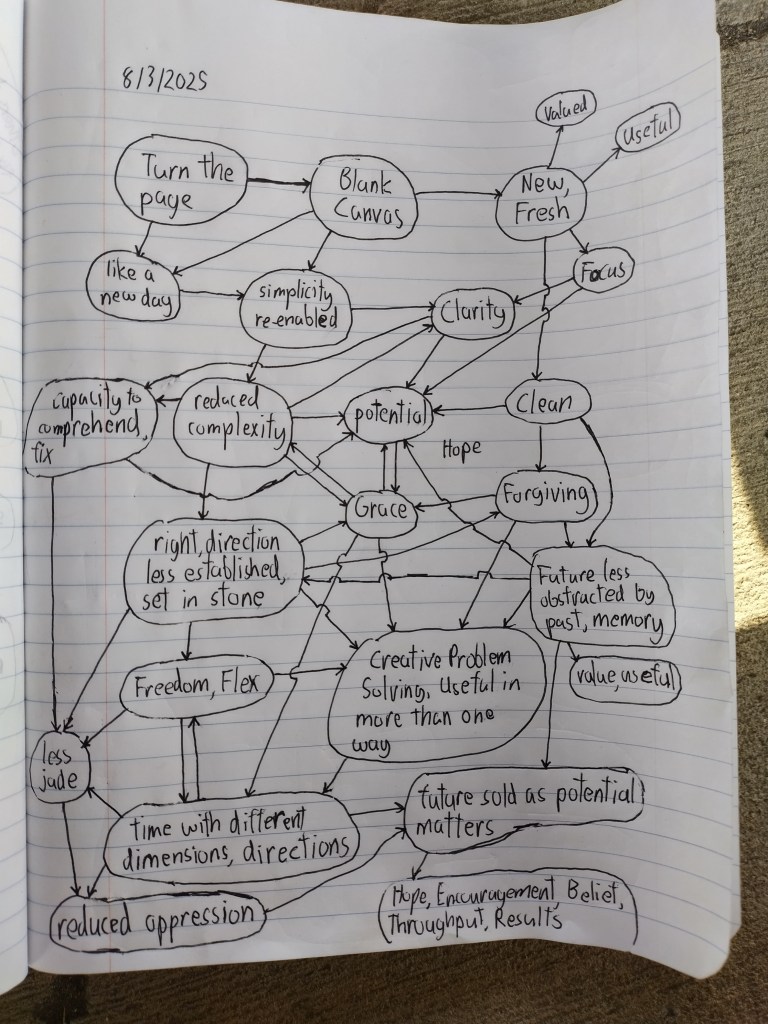 8/3/2025
Valued
useful
Turn the
page
Blank
Canvas
New,
Fresh
like a
new day
simplicity
re-enabled
Clarity
Focus
capacity to
comprehend,
fix
reduced
complexity
potential
Clean
Hope
Grace
Forgiving
right, direction
less established,
set in stone
Future less
obstracted by
past, memory
Freedom, Flex
Creative Problem
Solving, Useful in
more than one
way
value, useful
less
jade
time with different
dimensions, directions
future sold as potential
matters
reduced oppression
Hope, Encouragement, Belief,
Throughput, Results